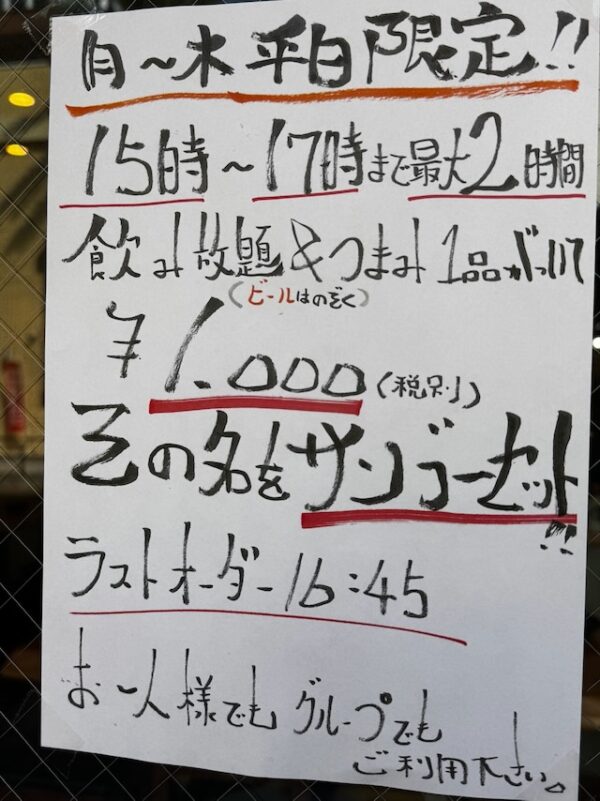 月～水 平日限定!!
15時～17時まで最大2時間
飲み放題&つまみ1品がついて
(ビールはのぞく)
¥1.000(税別)
その名をサンゴーセット!!
ラストオーダー16:45
お一人様でもグループでも
ご利用下さい。